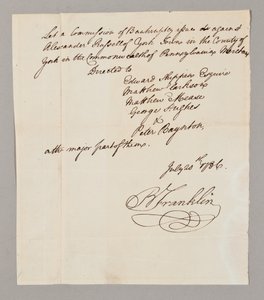 Let a Commission of Bankruptcy issue against
Alexander Russell of York Town in the County of
York in the Commonwealth of Pennsylvania
Directed to
Edward Shippen Esquire
Matthew Clarkson
Matthew
George Hughes
&
Peter Baynton,
or the major part of them.
July 20th 1786.
B Franklin